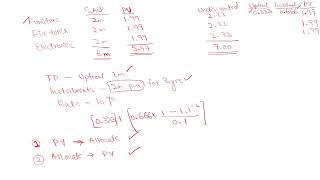 Cost PV Undiscounted Upfront Instalment PV
Furniture 2m 1.99 2.33 1.99
Fixtures 2m 1.99 2.33 1.99
Electronics 2m 1.99 2.33 1.99
6m 5.97 7.00
TP — Upfront 1m
Instalments — 2m p.a for 3 yrs
Rate — 10%
[0.333] + [0.666 x 1 - 1.1
0.1
① PV → Allocate ✓
② Allocate → PV ✓